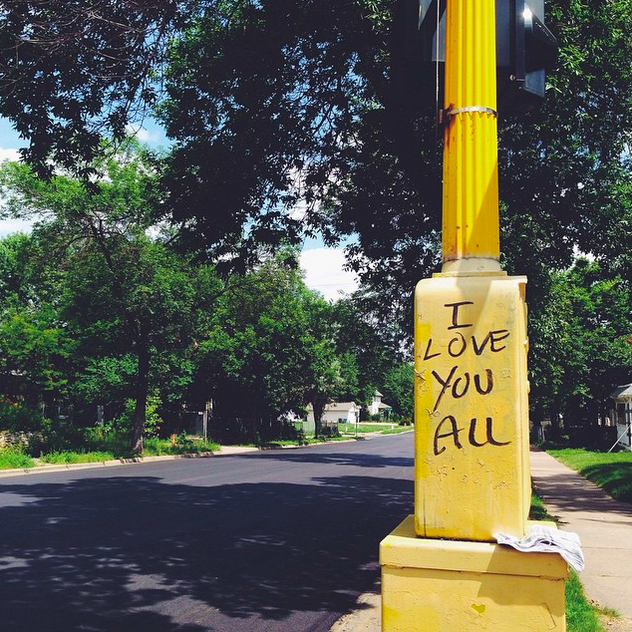 I
LOVE
YOU
ALL